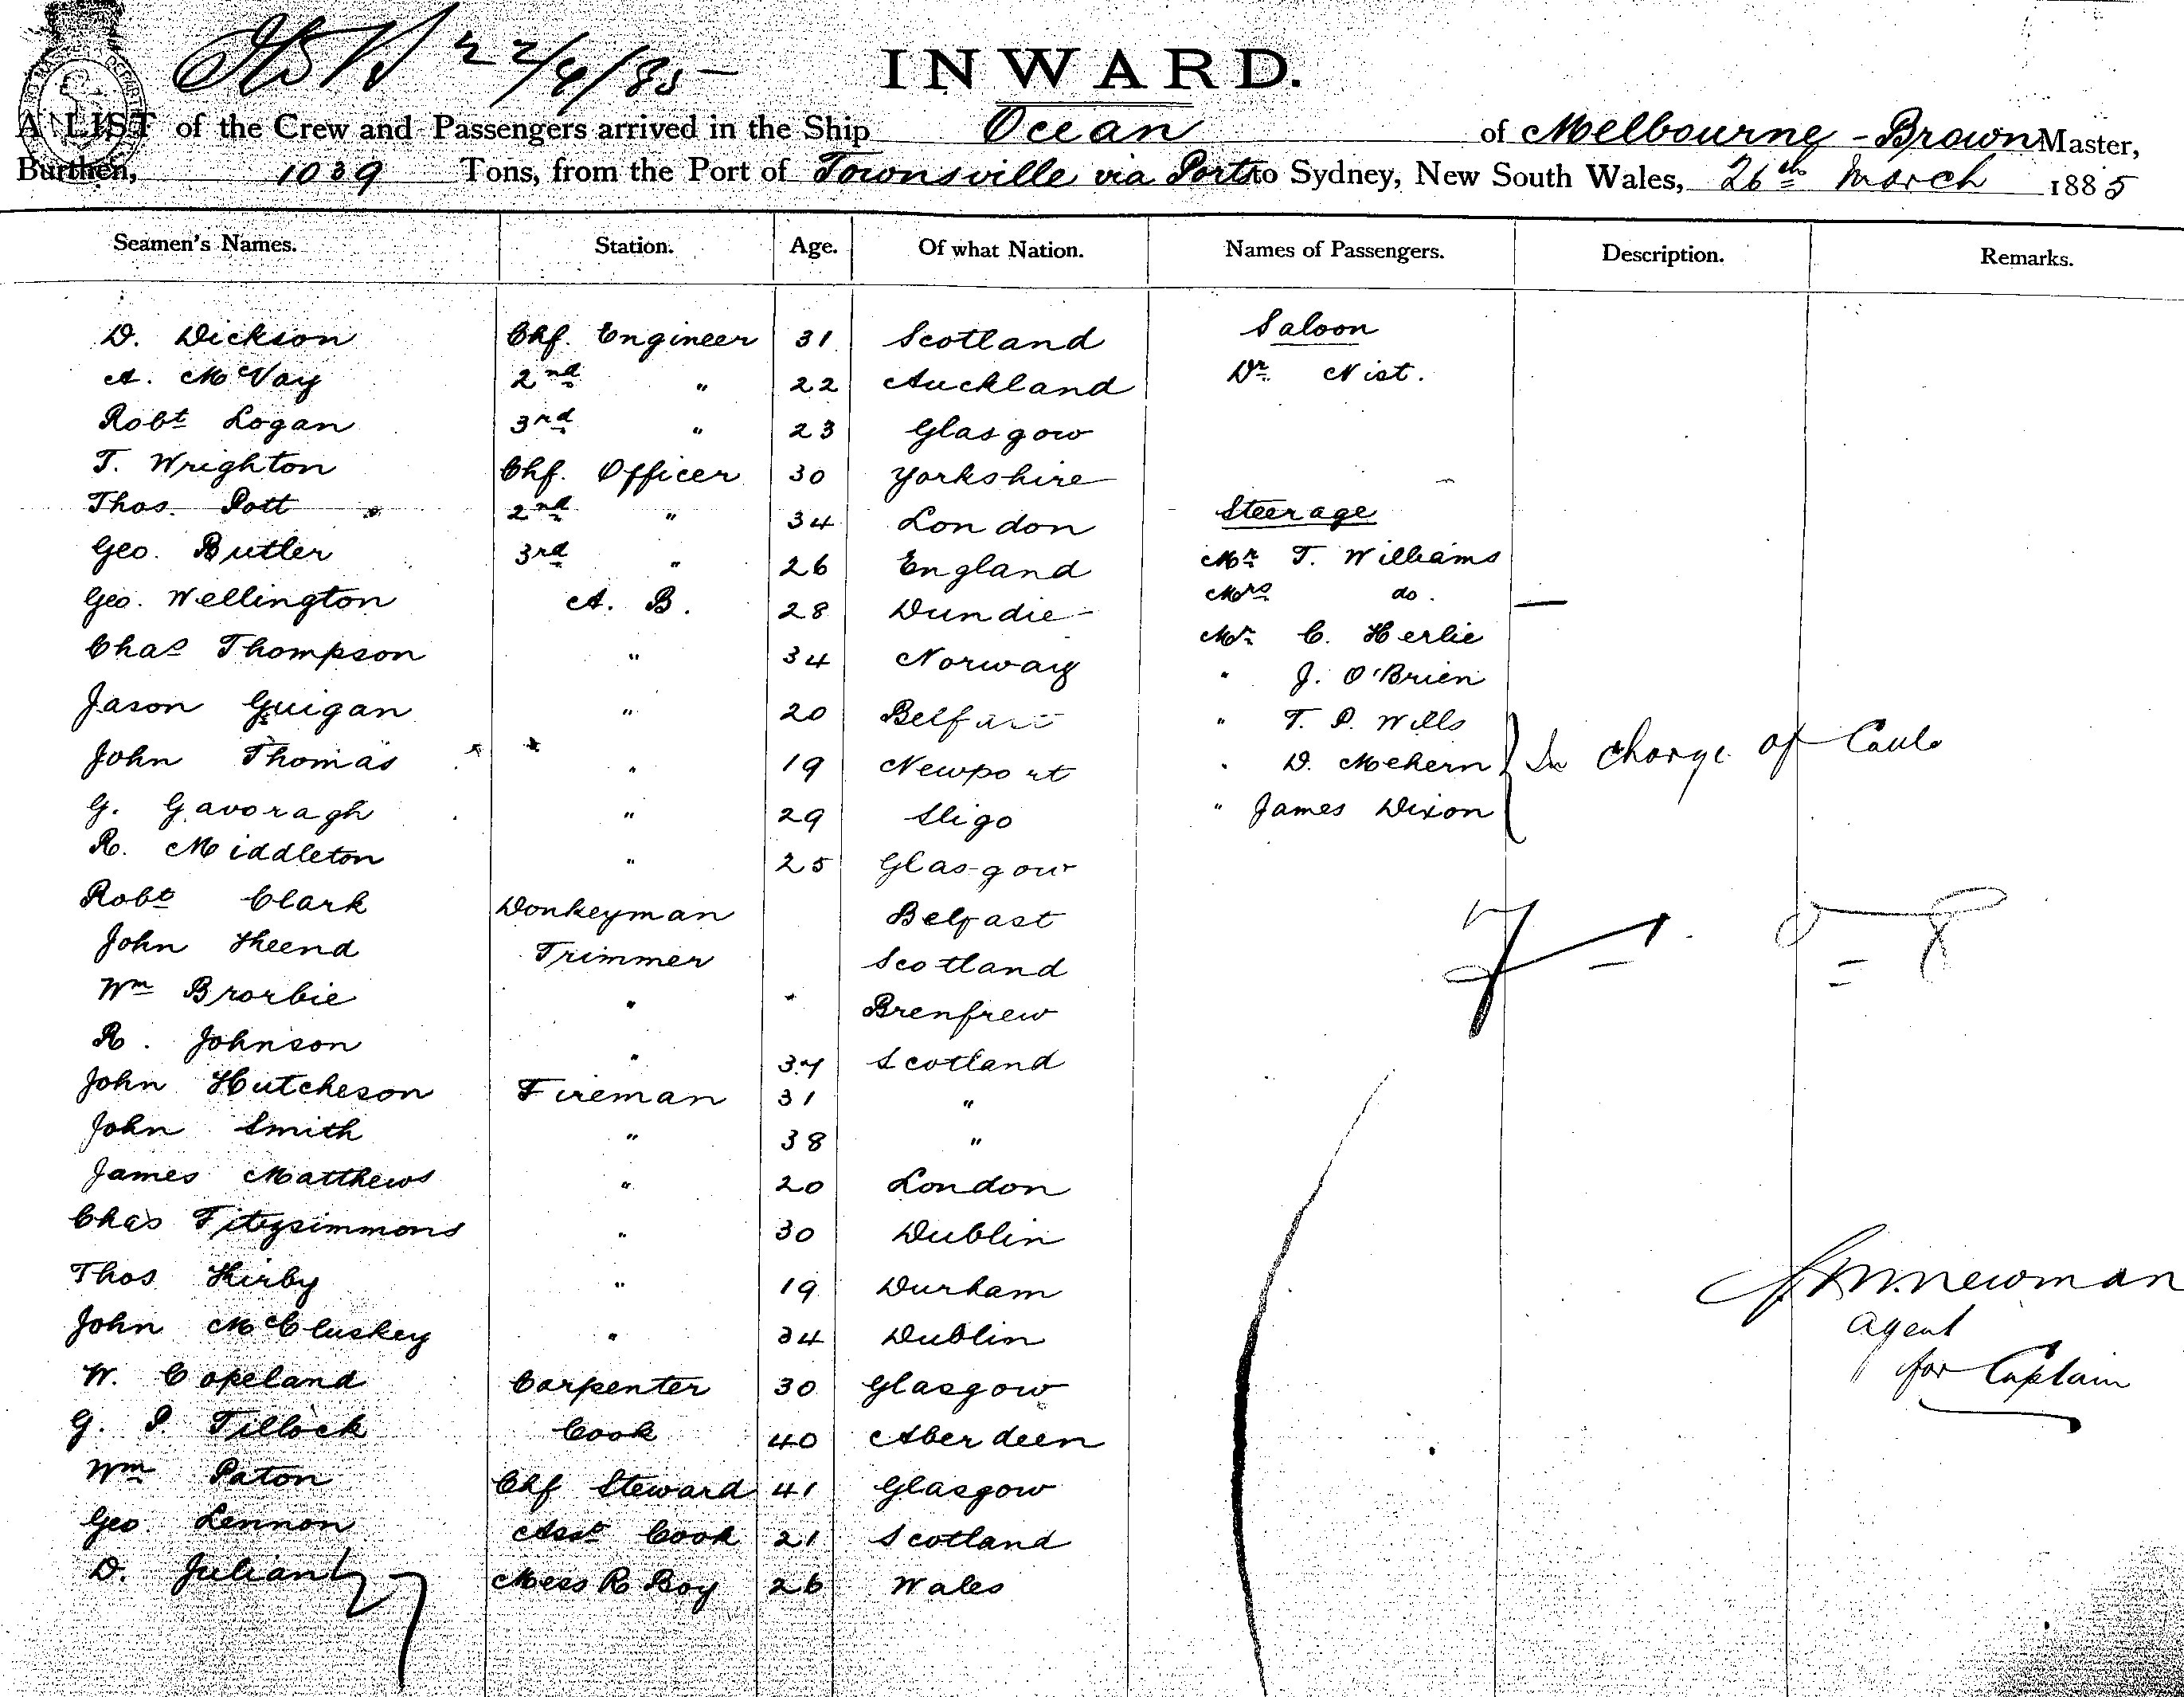 22/4/85
INWARD.
A LIST of the Crew and Passengers arrived in the Ship Ocean of Melbourne - Brown Master,
Burthen, 1039 Tons, from the Port of Townsville via Ports to Sydney, New South Wales, 26th March 1885
Seamen's Names. Station. Age. Of what Nation. Names of Passengers. Description. Remarks.
D. Dickson Chf. Engineer 31 Scotland Saloon
A. McVay 2nd " 22 Auckland Dr. Nist.
Robt Logan 3rd " 23 Glasgow
T. Wrighton Chf. Officer 30 Yorkshire
Thos. Pott 2nd " 34 London Steerage
Geo. Butler 3rd " 26 England Mr T. Williams
Geo. Wellington A. B. 28 Dundie Mrs do.
Chas Thompson " 34 Norway Mr C. Herlie
Jason Guigan " 20 Belfast " J. O'Brien
John Thomas " 19 Newport " T. P. Wills
G. Gavoragh " 29 Sligo " D. Mehern In charge of
R. Middleton " 25 Glasgow " James Dixon
Robt Clark Donkeyman Belfast
John Heend Trimmer Scotland
Wm Brorbie " " Brenfrew
R. Johnson " 37 Scotland
John Hutcheson Fireman 31 "
John Smith " 38 "
James Matthews " 20 London
Chas Fitzsimmons " 30 Dublin
Thos Kirby " 19 Durham
John McCluskey " 34 Dublin
W. Copeland Carpenter 30 Glasgow
G. P. Tillock Cook 40 Aberdeen
Wm Paton Chf Steward 41 Glasgow
Geo Lennon Asst Cook 21 Scotland
D. Julian Mess R Boy 26 Wales
27
7 - 1. 8
Newman
agent
for Captain